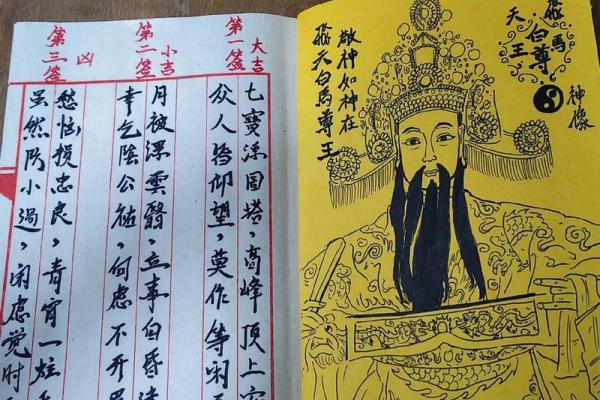 飛馬
白尊
天王
神像
敬神如神在
飛天白馬尊王
大吉
第一签
七寶浮图塔，高峰顶上
众人皆仰望，莫作等闲
小吉
第二签
月被浮雲翳，立事自昏
幸乞陰公祐，何慮不开
凶
第三签
愁恼損忠良，青宵一炷
虽然防小過，闲慮觉时